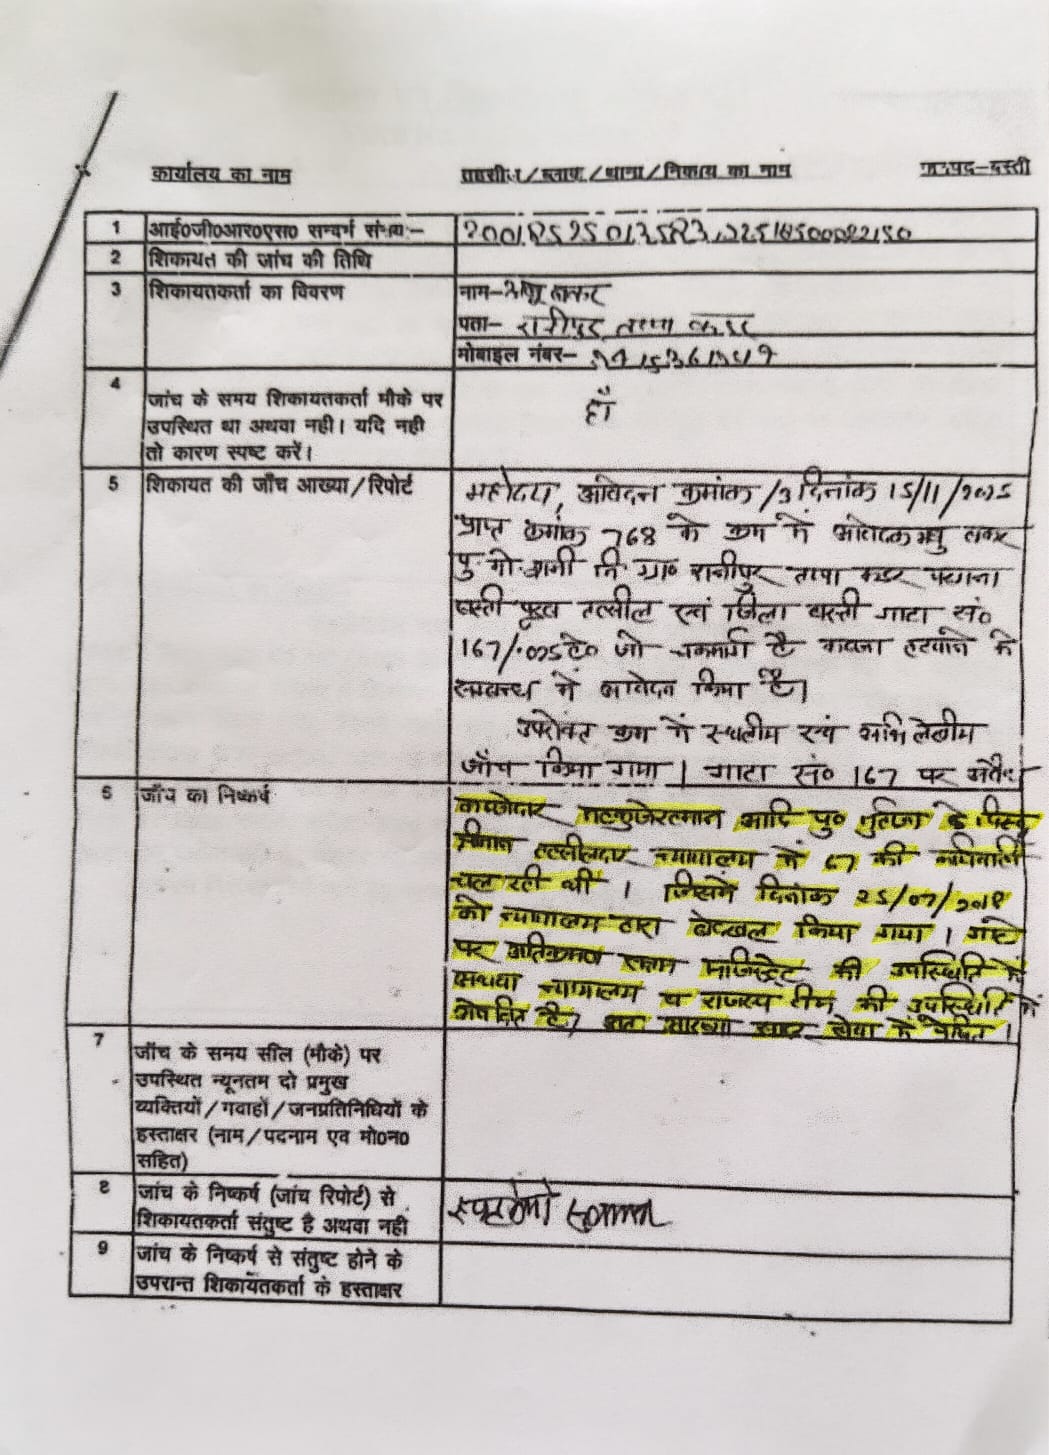 कार्यालय का नाम
तहसील/ब्लाक/थाना/निकाय का नाम
जनपद-बस्ती
1 आई०जी०आर०एस० सन्दर्भ संख्या:-
2 शिकायत की जांच की तिथि
3 शिकायतकर्ता का विवरण
नाम-
पता- रानीपुर तप्पा कडर
मोबाइल नंबर-
4 जांच के समय शिकायतकर्ता मौके पर
उपस्थित था अथवा नही। यदि नही
तो कारण स्पष्ट करें।
हाँ
5 शिकायत की जाँच आख्या/रिपोर्ट
महोदय, आवेदन क्रमांक /3 दिनांक 15/11/2025
प्राप्त क्रमांक 768 के क्रम में आवेदक
नि ग्रा० रानीपुर तप्पा कडर परगना
बस्ती पूरब तहसील एवं जिला बस्ती गाटा सं०
167/.025हे० जो चकमार्ग है कब्जा हटवाने के
सम्बन्ध में आवेदन किया है।
उपरोक्त क्रम में स्थलीय एवं अभिलेखीय
जाँच किया गया। गाटा सं० 167 पर अवैध
6 जाँच का निष्कर्ष
कब्जेदार आदि पु० के विरूद्ध
श्रीमान तहसीलदार न्यायालय में 67 की कार्यवाही
चल रही थी। जिसमें दिनांक 25/07/2018
को न्यायालय द्वारा बेदखल किया गया। गाटे
पर अतिक्रमण मजिस्ट्रेट की उपस्थिति में
अथवा न्यायालय व राजस्व टीम की उपस्थिति में
है। अतः आख्या सादर सेवा में प्रेषित।
7 जाँच के समय सील (मौके) पर
उपस्थित न्यूनतम दो प्रमुख
व्यक्तियों/गवाहों/जनप्रतिनिधियों के
हस्ताक्षर (नाम/पदनाम एव मो0न0
सहित)
8 जांच के निष्कर्ष (जांच रिपोर्ट) से
शिकायतकर्ता संतुष्ट है अथवा नही
9 जांच के निष्कर्ष से संतुष्ट होने के
उपरान्त शिकायतकर्ता के हस्ताक्षर